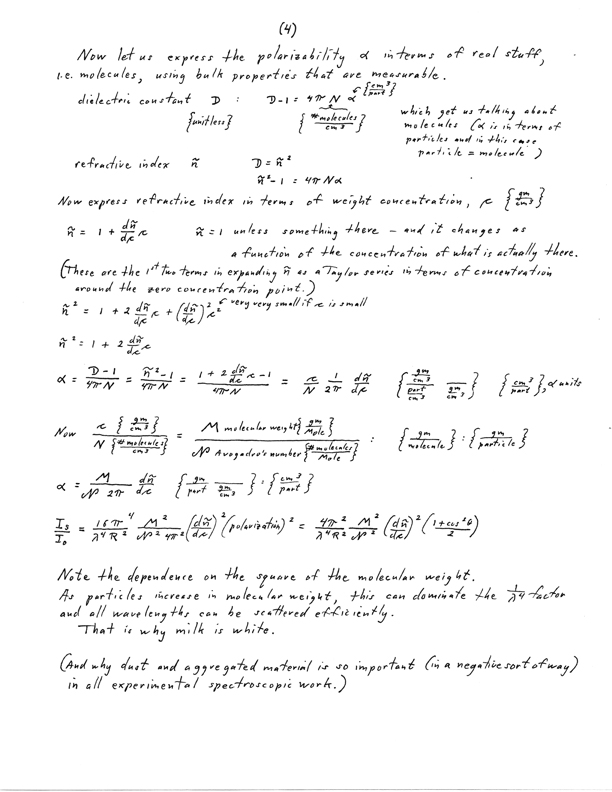 (4)
Now let us express the polarizability α in terms of real stuff,
i.e. molecules, using bulk properties that are measurable.
dielectric constant D : D-1 = 4π N α {cm³/part}
{unitless} {# molecules/cm³}
which get us talking about
molecules (α is in terms of
particles and in this case
particle = molecule)
refractive index ñ D = ñ²
ñ²-1 = 4πNα
Now express refractive index in terms of weight concentration, c {gm/cm³}
ñ = 1 + dñ/dc c ñ = 1 unless something there – and it changes as
a function of the concentration of what is actually there.
(These are the 1st two terms in expanding ñ as a Taylor series in terms of concentration
around the zero concentration point.)
ñ² = 1 + 2 dñ/dc c + (dñ/dc)² c² very very small if c is small
ñ² = 1 + 2 dñ/dc c
α = D-1/4πN = ñ²-1/4πN = 1 + 2 dñ/dc c - 1/4πN = c/N 1/2π dñ/dc {gm/cm³ / part/cm³ / gm/cm³} {cm³/part}, α units
Now c {gm/cm³} / N {# molecules/cm³} = M molecular weight {gm/Mole} / 𝒩 Avogadro's number {# molecules/Mole} : {gm/molecule} : {gm/particle}
α = M/𝒩 2π dñ/dc {gm/part / gm/cm³} : {cm³/part}
Is/I₀ = 16π⁴/λ⁴R² M²/𝒩² 4π² (dñ/dc)² (polarization)² = 4π²/λ⁴R² M²/𝒩² (dñ/dc)² (1+cos²θ/2)
Note the dependence on the square of the molecular weight.
As particles increase in molecular weight, this can dominate the 1/λ⁴ factor
and all wavelengths can be scattered efficiently.
That is why milk is white.
(And why dust and aggregated material is so important (in a negative sort of way)
in all experimental spectroscopic work.)